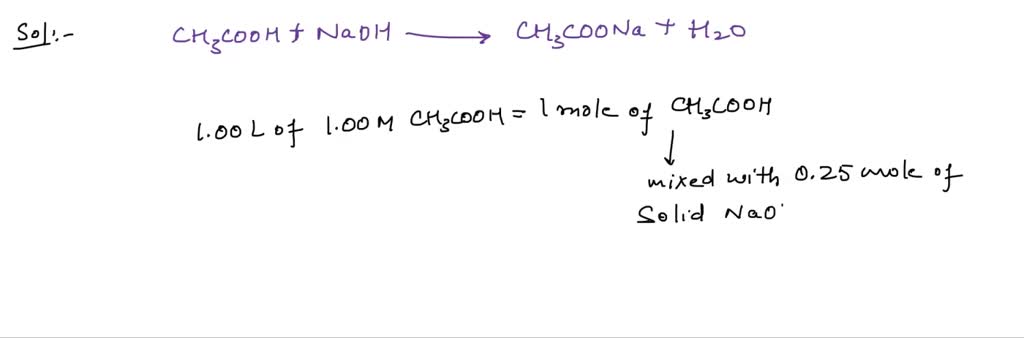 Sol:-
CH₃COOH + NaOH ⟶ CH₃COONa + H₂O
1.00 L of 1.00 M CH₃COOH = 1 mole of CH₃COOH
↓
mixed with 0.25 mole of
Solid NaO